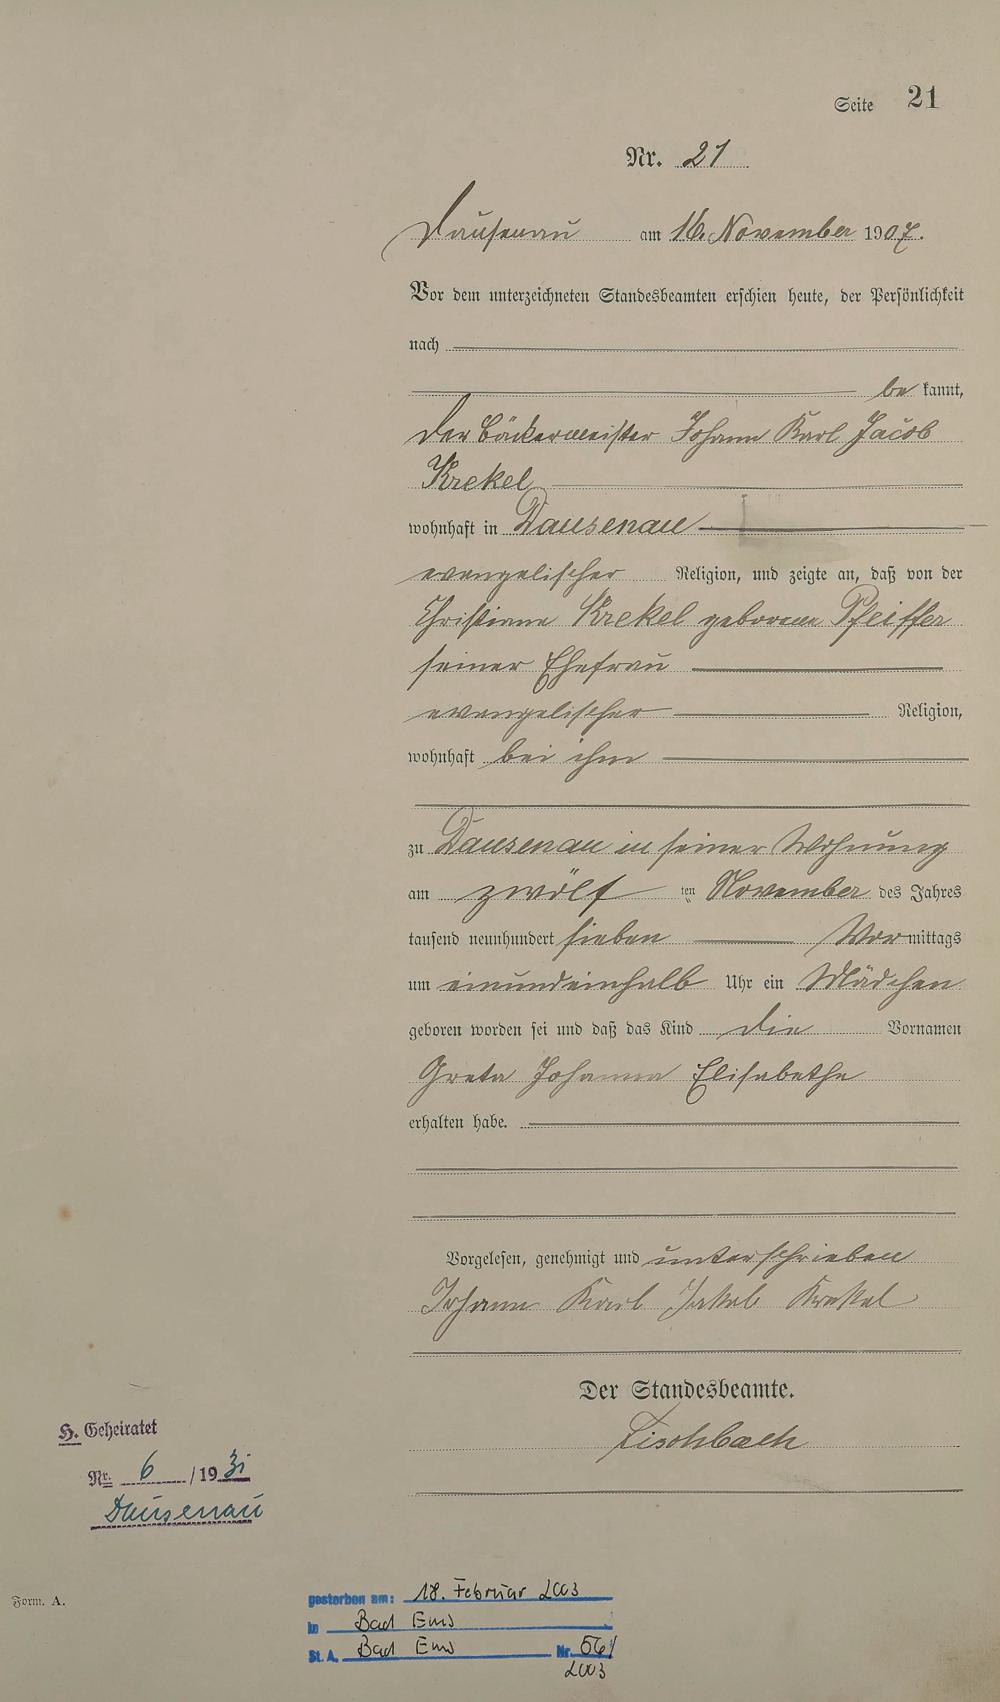 Seite 21
Nr. 21
Dausenau am 16. November 1907.
Vor dem unterzeichneten Standesbeamten erschien heute, der Persönlichkeit
nach
be kannt,
der Bäckermeister Johann Karl Jacob
Krekel
wohnhaft in Dausenau
evangelischer Religion, und zeigte an, daß von der
Christiane Krekel geborene Pfeiffer
seiner Ehefrau
evangelischer Religion,
wohnhaft bei ihm
zu Dausenau in seiner Wohnung
am zwölf ten November des Jahres
tausend neunhundert sieben Vormittags
um einundeinhalb Uhr ein Mädchen
geboren worden sei und daß das Kind die Vornamen
Greta Johanna Elisabetha
erhalten habe.
Vorgelesen, genehmigt und unterschrieben
Johann Karl Jakob Krekel
Der Standesbeamte.
Fischbach
H. Geheiratet
Nr. 6 /1931
Dausenau
Form. A.
gestorben am: 18. Februar 2003
in Bad Ems
St. A. Bad Ems Nr. 56/
2003